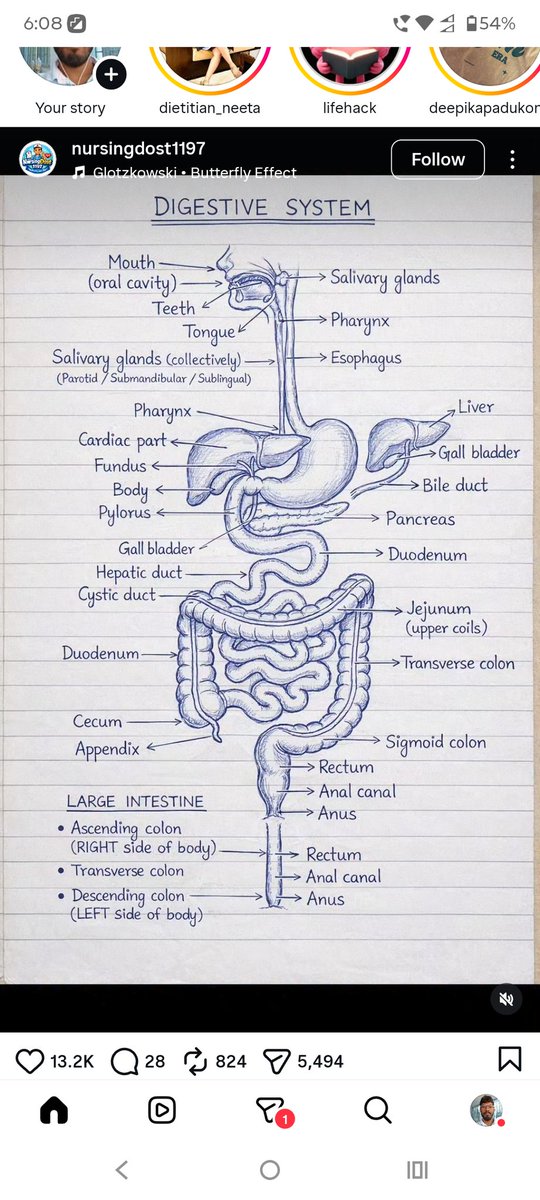 6:08
54%
Your story
dietitian_neeta
lifehack
deepikapadukon
ERA
nursingdost1197
Glotzkowski • Butterfly Effect
Follow
DIGESTIVE SYSTEM
Mouth
(oral cavity)
Teeth
Tongue
Salivary glands
Pharynx
Salivary glands (collectively)
(Parotid / Submandibular / Sublingual)
Esophagus
Pharynx
Cardiac part
Fundus
Body
Pylorus
Liver
Gall bladder
Bile duct
Pancreas
Gall bladder
Duodenum
Hepatic duct
Cystic duct
Jejunum
(upper coils)
Duodenum
Transverse colon
Cecum
Appendix
Sigmoid colon
Rectum
Anal canal
Anus
LARGE INTESTINE
• Ascending colon
(RIGHT side of body)
• Transverse colon
• Descending colon
(LEFT side of body)
Rectum
Anal canal
Anus
13.2K
28
824
5,494
1